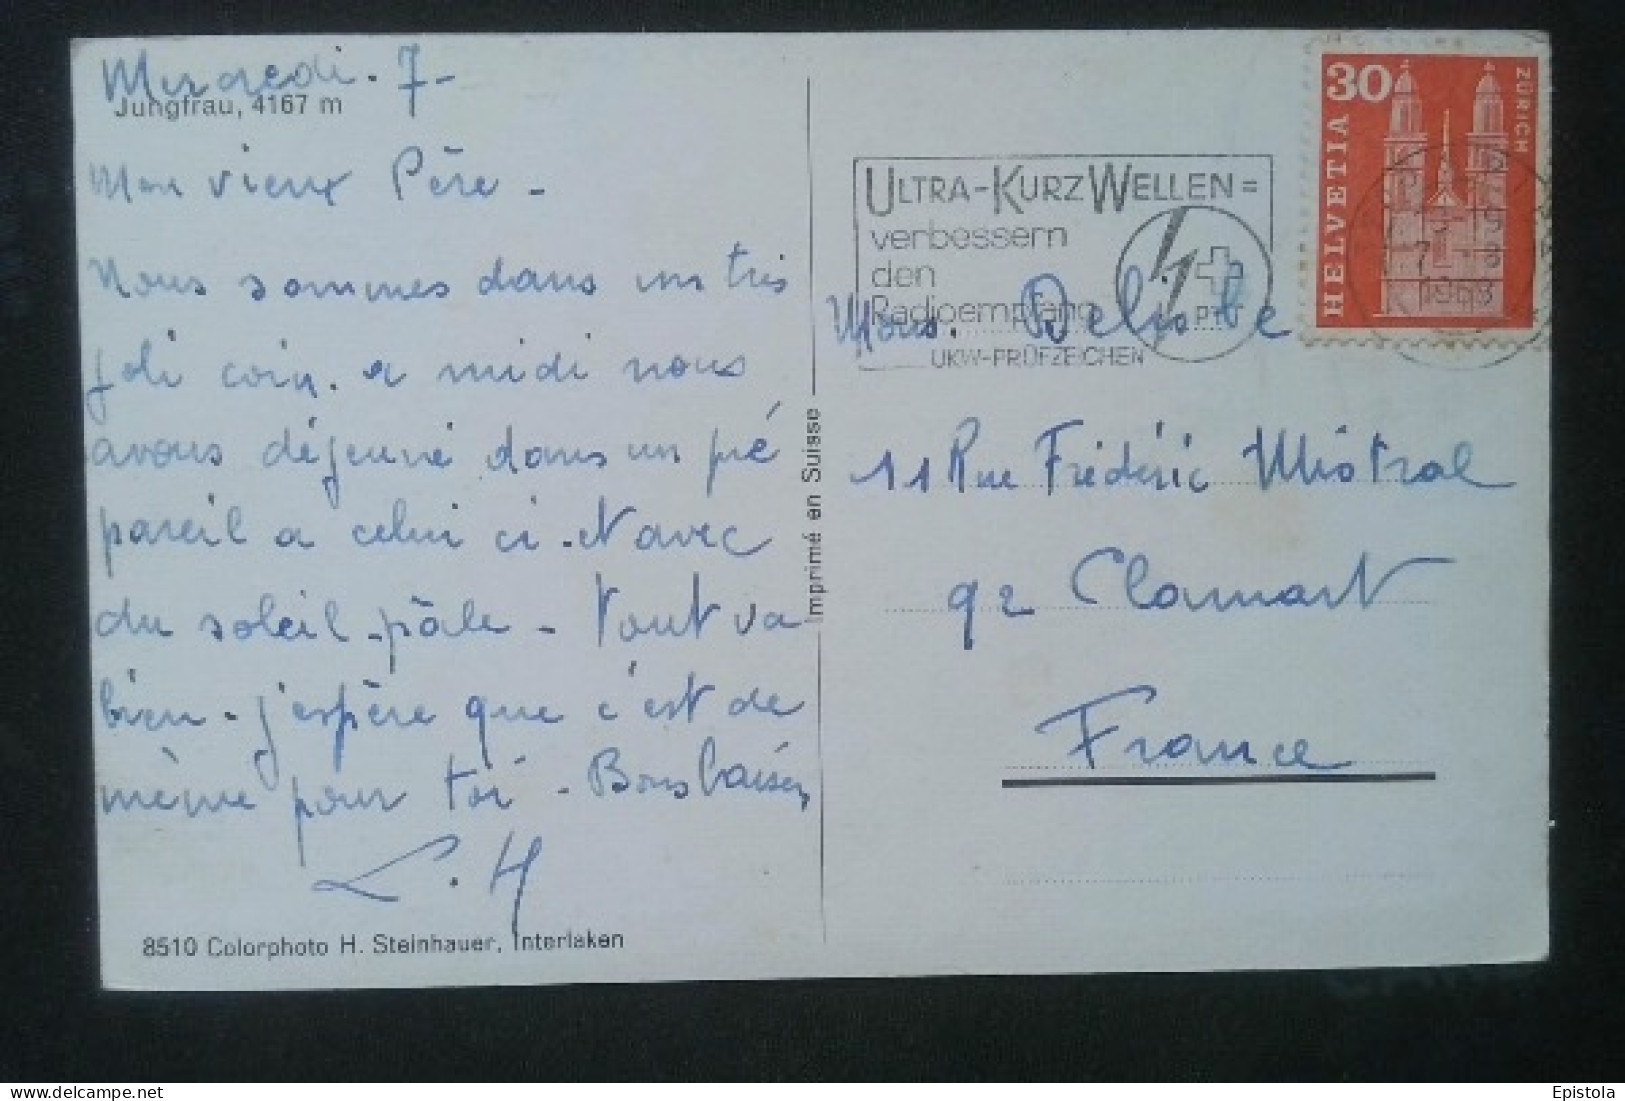 Mercredi. 7-
Jungfrau, 4167 m
Mon vieux Père -
Nous sommes dans un très
joli coin. a midi nous
avons déjeuné dans un pré
pareil a celui ci - et avec
du soleil - pâle - tout va
bien - j'espère que c'est de
même pour toi - Bons baisers
L. H
8510 Colorphoto H. Steinhauer, Interlaken
Imprimé en Suisse
ULTRA-KURZ WELLEN =
verbessern
den
Radioempfang
PTT
UKW-PRÜFZEICHEN
30
HELVETIA
ZÜRICH
1968
Mons. Delisle
11 Rue Frédéric Mistral
92 Clamart
France
Epistola